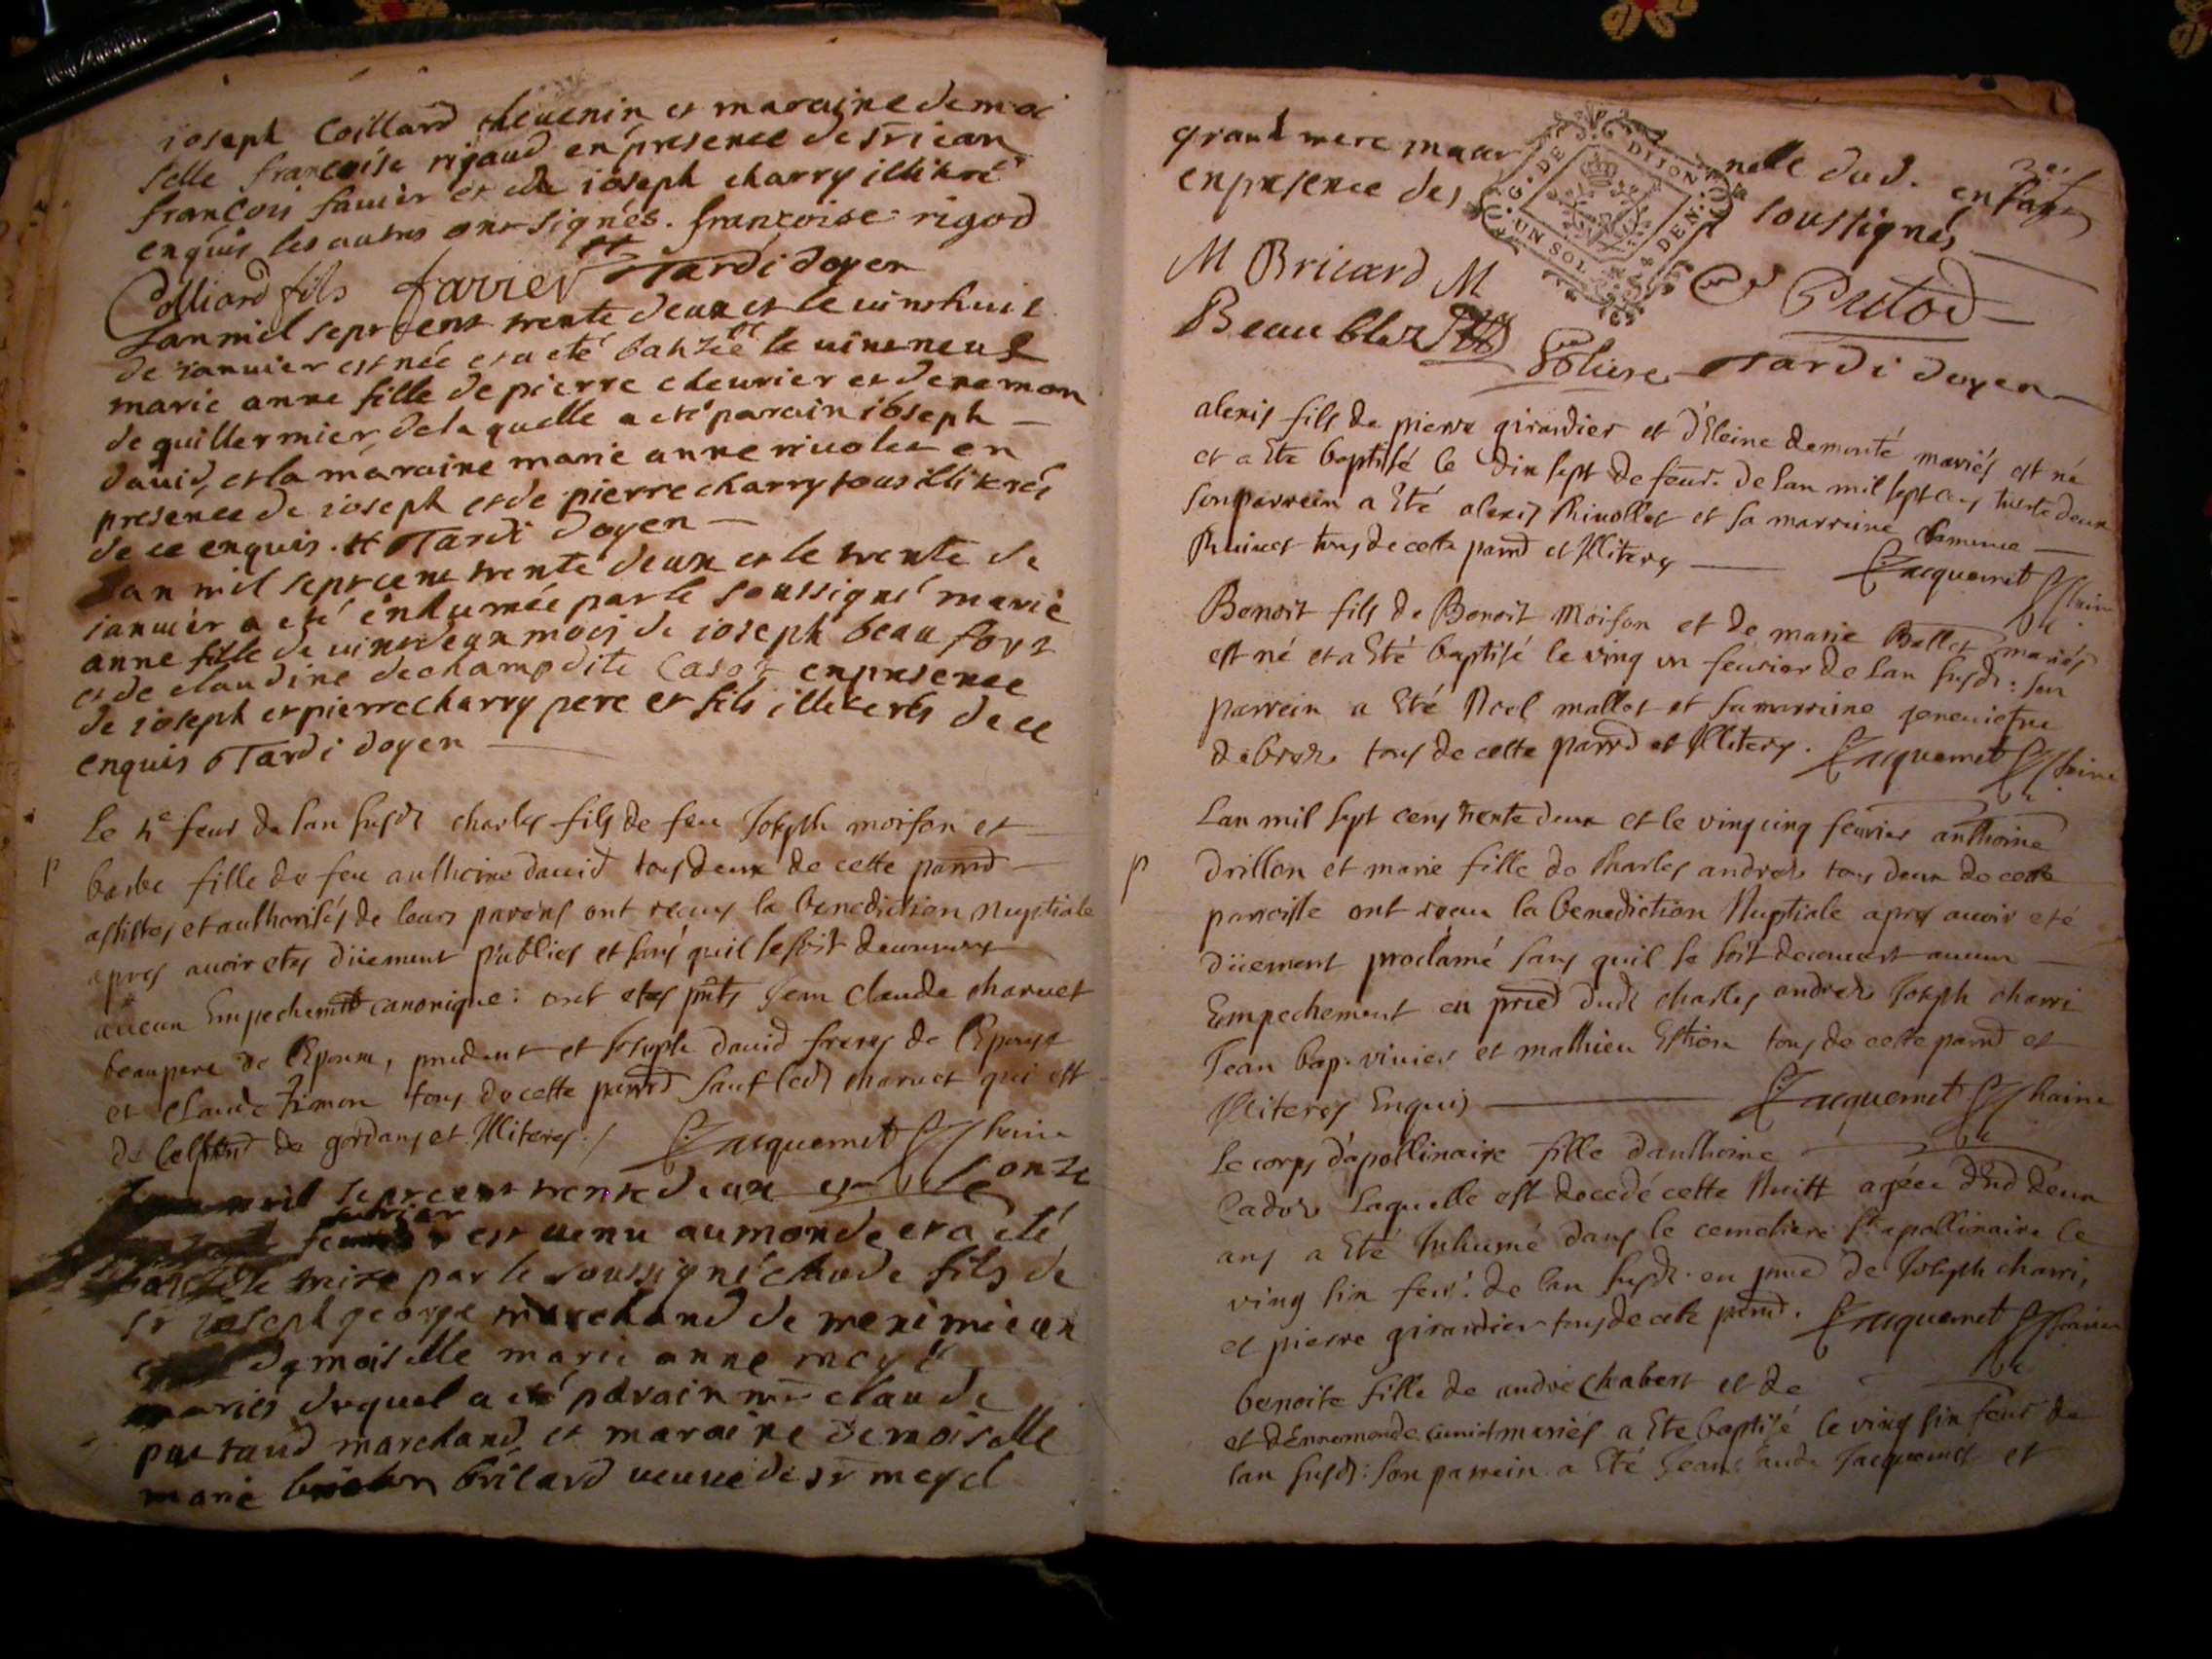 ioseph Coillard thevenin et maraine demoi
selle françoise rigaud en presence de sr iean
françois favier et de ioseph charry illiteré
enquis les autres ont signés. françoise rigod
Colliard fils favier Tardi doyen
Lan mil sept cent trente deux et le vint huit
de ianvier est née et a eté batisée le vint neuf
marie anne fille de pierre chevrier et denemon
de guillermier de laquelle a eté parain ioseph
david, et la maraine marie anne rivolet en
presence de ioseph et de pierre charry tous illiterés
de ce enquis. Tardi doyen
Lan mil sept cent trente deux et le trente de
ianvier a eté inhumée par le soussigné marie
anne fille de vint deux mois de ioseph beaufort
et de claudine dechamp dite Casot en presence
de ioseph et pierre charry pere et fils illiterés de ce
enquis Tardi doyen
Le 4e feur de lan susdt charles fils de feu Joseph moison et
barbe fille de feu anthoine david tous deux de cette parrd
assistes et authorisés de leurs parens ont reçus la benediction nuptiale
apres avoir etes düement publies et sans quil se soit decouvert
aucun Empechemt canonique: ont etes pnts Jean Claude charvet
beaupere de l'Epoux, prudent et Joseph david freres de l'Epouse
et Claude Simon tous de cette parrd sauf ledt charvet qui est
de celle de gordans et Illiteres./ Jacquemet
Lan mil sept cent trente deux et le onze
fevrier est venu au monde et a eté
batisé le treize par le soussigné claude fils de
sr ioseph george marchand de meximieux
et de demoiselle marie anne meyd
mariés duquel a eté parain mr claude
putaud marchand et maraine demoiselle
marie bricard veuve de sr meyd
grand mere mater nelle dud. enfant
en presence des soussignés
G. DE DIJON
UN SOL 4 DEN.
M Bricard M Putod
Tardi doyen
alexis fils de pierre girardier et d'Eleine demonté mariés est né
et a Eté baptisé le dix sept de feur. de lan mil sept cens trente deux
son parrein a Eté alexis Rivollet et sa marraine Clemence
Rivivet tous de cette parrd et Illiteres Jacquemet
Benoit fils de Benoit Moison et de marie Bellet mariés
est né et a Eté baptisé le ving un fevrier de lan susdt: son
parrein a Eté Noel mallet et sa marreine geneviefve
tous de cette parrd et Illiteres. Jacquemet
Lan mil sept cens trente deux et le ving cinq fevrier anthoine
drillon et marie fille de Charles andreé tous deux de cette
parroisse ont reçu la benediction Nuptiale apres avoir eté
düement proclamé sans quil se soit decouvert aucun
Empechement en prce dudt charles andreé Joseph charri
Jean bap. vivier et mathieu Estion tous de cette parrd et
Illiteres Enquis Jacquemet
Le corps d'apollinaire fille d'anthoine
Cador laquelle est decedé cette Nuitt agée de deux
ans a Eté Inhumé dans le cemetiere St apollinaire le
ving six feur. de lan susdt. en prce de Joseph charri,
et pierre girardier tous de cette parrd. Jacquemet
benoite fille de andré chabert et de
et d'Ennemonde mariés a Ete baptisé le ving six feur de
lan susdt: son parrein a Eté Jean Claude Jacquemet et